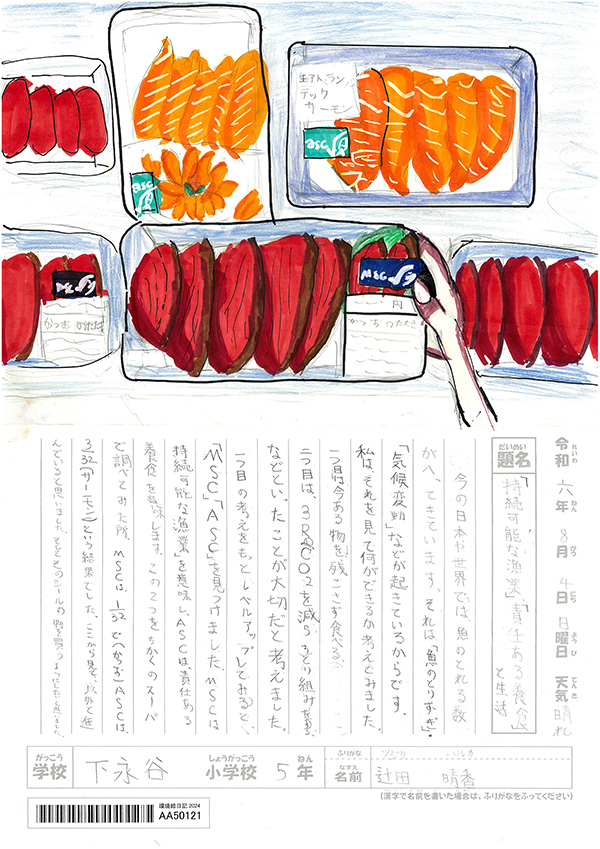 生アトランテック
サーモン
asc
asc
MSC
かつおのたたき
MSC
円
かつおのたたき
令和 六年 8月 4日 日曜日 天気 晴れ
れいわ ねん がつ にち ようび てんき
だいめい
題名
「持続可能な漁業」「責任ある養食」
と生活
今の日本や世界では、魚のとれる数
がへってきています。それは、「魚のとりすぎ」・
「気候変動」などが起きているからです。
私は、それを見て何ができるか考えてみました。
一つ目は今ある物を残こさず食べる。
二つ目は、3RやCO2を減らすとり組みをする
などといったことが大切だと考えました。
一つ目の考えをもっとレベルアップしてみると、
「MSC」「ASC」を見つけました。MSCは
持続可能な漁業を意味し、ASCは、責任ある
養食を意味します。この2つをちかくのスーパ
で調べてみた所、MSCは1/32で(かつお)ASCは、
3/32(サーモン)という結果でした。ここから見て、以外と進
んでいると思いました。
がっこう
学校
下永谷
しょうがっこう
小学校
5
ねん
年
ふりがな
ハルカ
なまえ
名前
辻田 晴香
(漢字で名前を書いた場合は、ふりがなをふってください)
環境絵日記 2024
AA50121